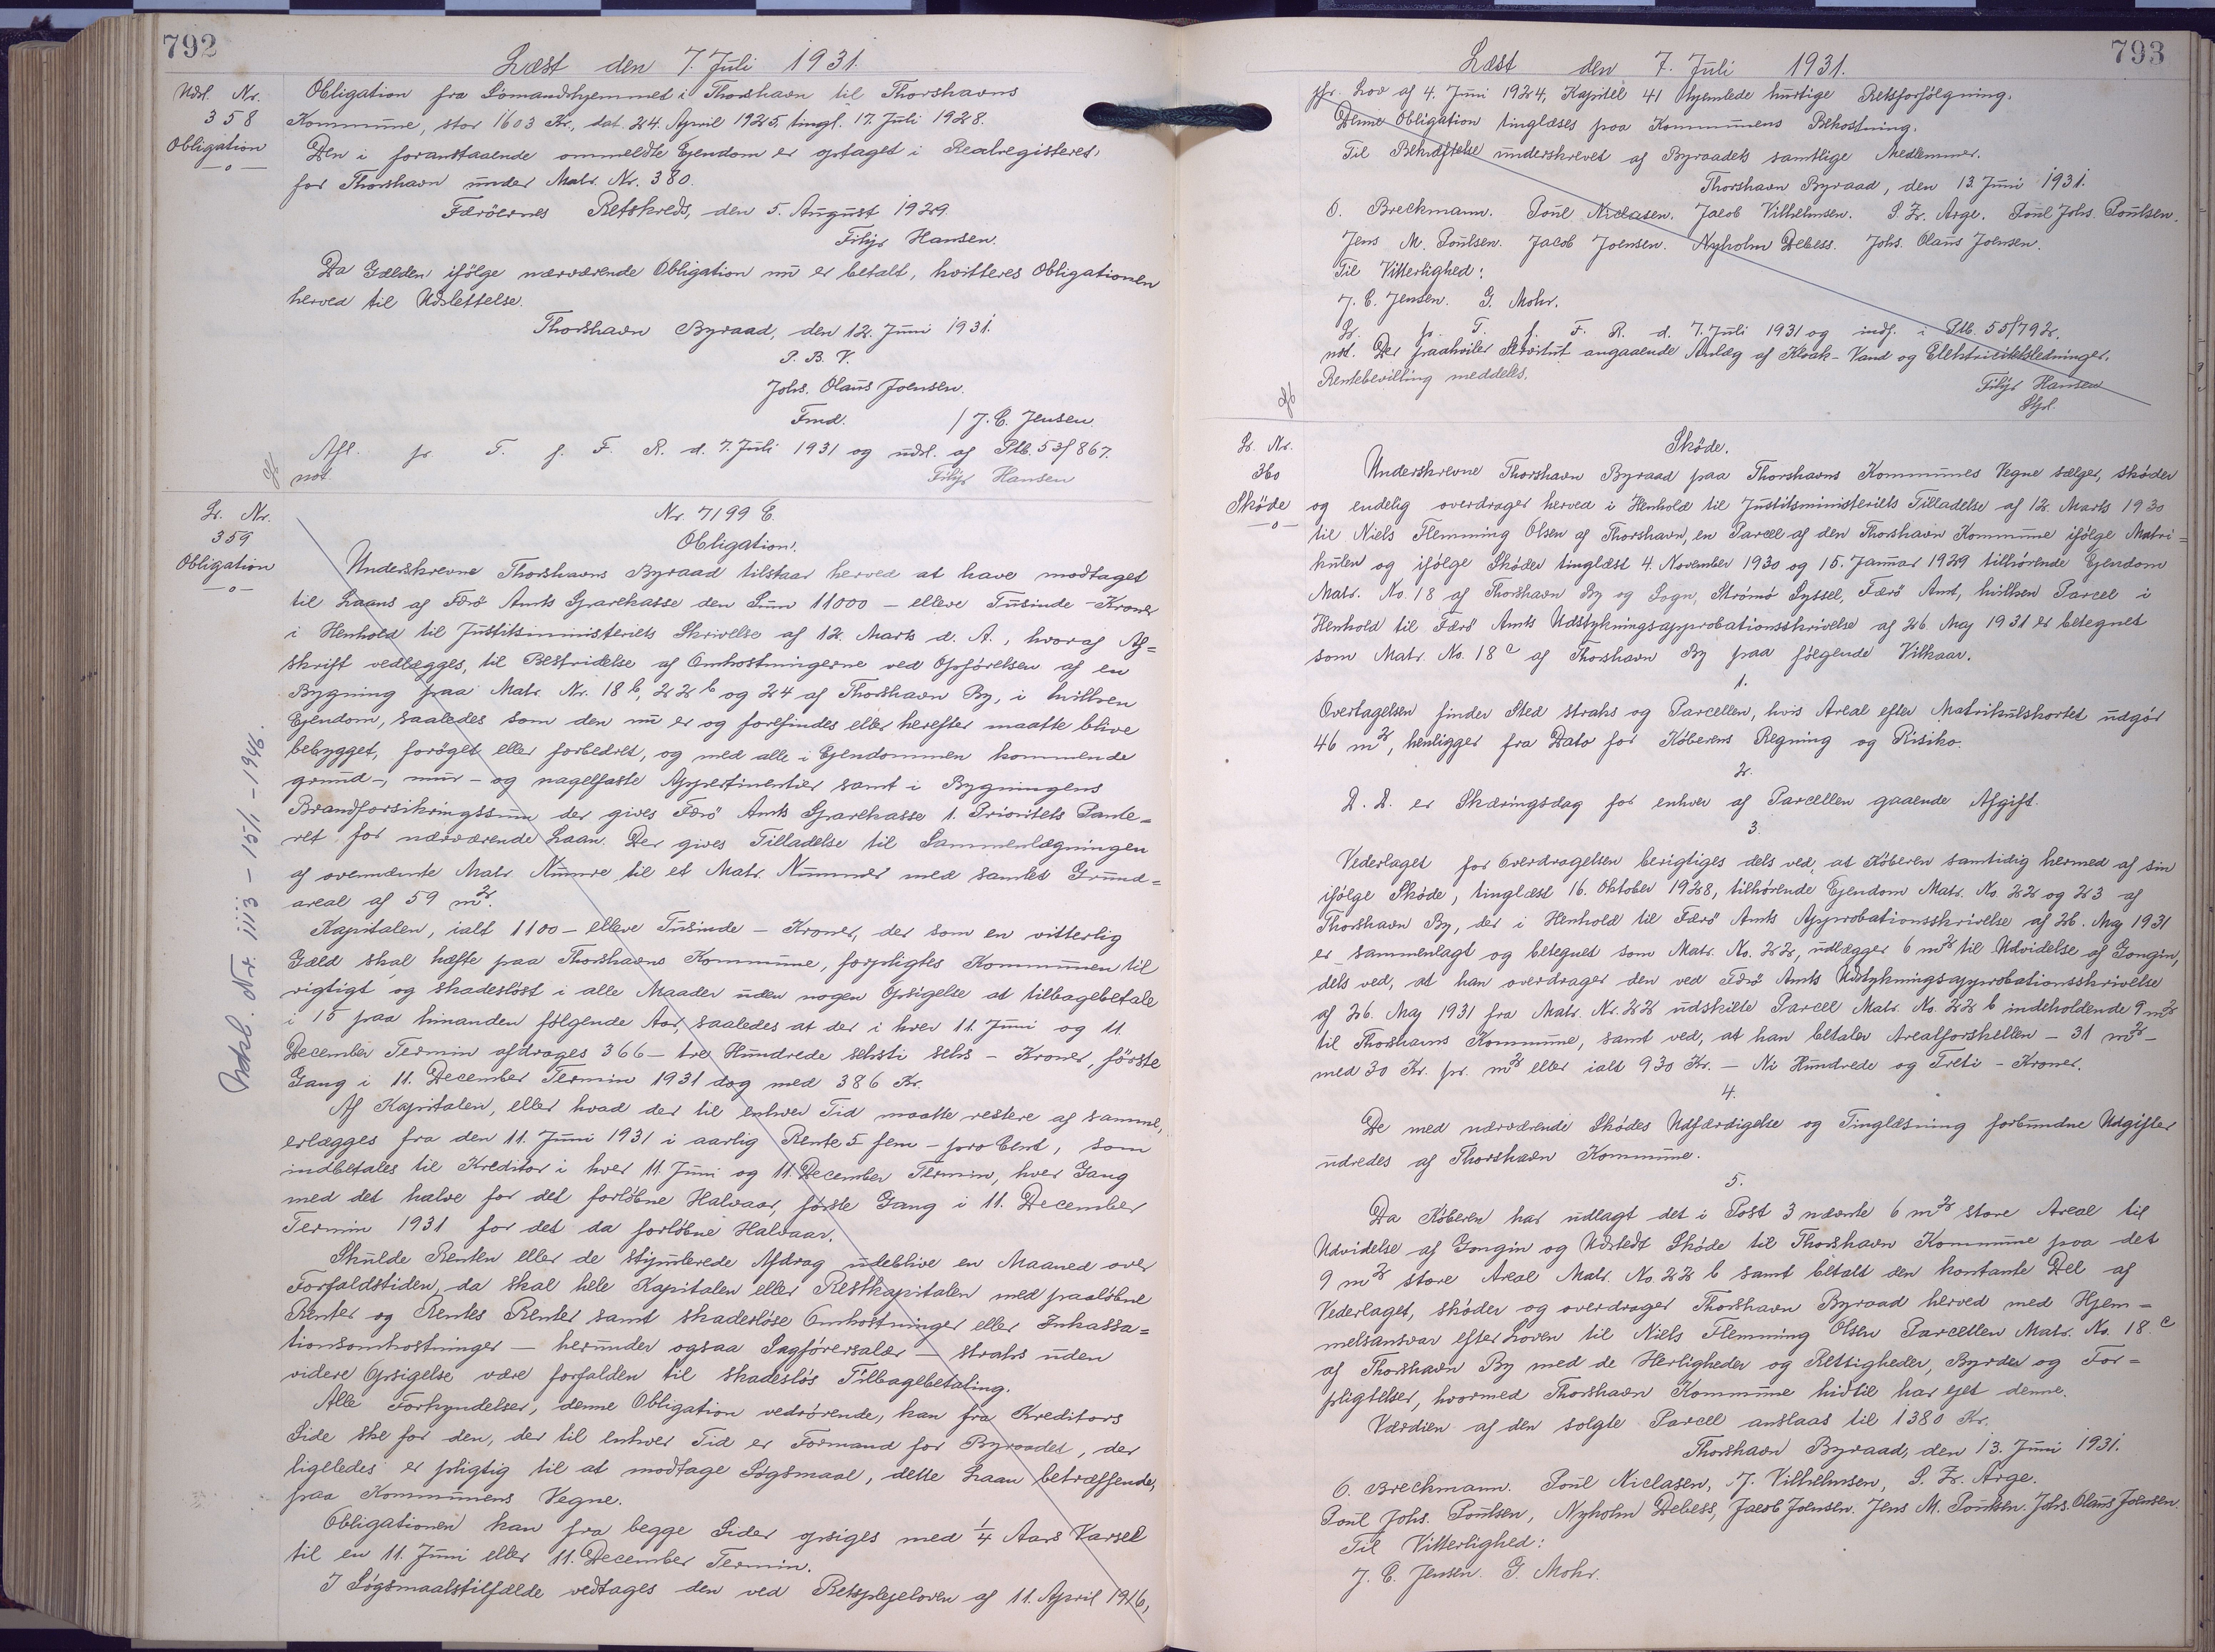 792
Læst den 7. Juli 1931.
Udsl. Nr.
358
Obligation
—o—
Obligation fra Sömandshjemmet i Thorshavn til Thorshavns
Kommune, stor 1603 Kr., dat. 24. April 1925, tingl. 17. Juli 1928.
Den i foranstaaende ommeldte Ejendom er optaget i Realregisteret
for Thorshavn under Matr. Nr. 380.
Færöernes Retskreds, den 5. August 1929
Filip Hansen.
Da Gælden ifölge nærværende Obligation nu er betalt, kvitteres Obligationen
herved til Udslettelse.
Thorshavn Byraad, den 12. Juni 1931.
P. B. V.
Johs. Olaus Joensen.
Fmd. / J. C. Jensen
Afl. p. T. f. F. R. d. 7. Juli 1931 og udsl. af Ptb. 53/867.
not. Filip Hansen
Lr. Nr.
359
Obligation
—o—
Nr. 7199 C.
Obligation.
Underskrevne Thorshavns Byraad tilstaar herved at have modtaget
til Laans af Færö Amts Sparekasse den Sum 11000 – elleve Tusinde – Kroner
i Henhold til Justitsministeriets Skrivelse af 12. Marts d. A., hvoraf Af=
skrift vedlægges, til Bestridelse af Omkostningerne ved Opförelsen af en
Bygning paa Matr. Nr. 18 b, 22 b og 24 af Thorshavn By, i hvilken
Ejendom, saaledes som den nu er og forefindes eller herefter maatte blive
bebygget, foröget eller forbedret, og med alle i Ejendommen kommende
grund-, mur- og nagelfaste Appertinentier samt i Bygningens
Brandforsikringssum der gives Færö Amts Sparekasse 1. Prioritets Pante=
ret for nærværende Laan. Der gives Tilladelse til Sammenlægningen
af ovennævnte Matr. Numre til et Matr. Nummer med samlet Grund=
areal af 59 m2.
Kapitalen, ialt 1100 – elleve Tusinde – Kroner, der som en vitterlig
Gæld skal hæfte paa Thorshavns Kommune, forpligtes Kommunen til
rigtigt og skadeslöst i alle Maader uden nogen Opsigelse at tilbagebetale
i 15 paa hinanden fölgende Aar, saaledes at der i hver 11. Juni og 11.
December Termin afdrages 366 – tre Hundrede seksti seks – Kroner, förste
Gang i 11. December Termin 1931 dog med 386 Kr.
Af Kapitalen, eller hvad der til enhver Tid maatte restere af samme,
erlægges fra den 11. Juni 1931 i aarlig Rente 5 fem – pro Cent, som
indbetales til Kreditor i hver 11. Juni og 11. December Termin, hver Gang
med det halve for det forlöbne Halvaar, förste Gang i 11. December
Termin 1931 for det da forlöbne Halvaar.
Skulde Renten eller de stipulerede Afdrag udeblive en Maaned over
Forfaldstiden, da skal hele Kapitalen eller Restkapitalen med paalöbne
Renter og Rentes Renter samt skadeslöse Omkostninger eller Inkassa=
tionsomkostninger – herunder ogsaa Sagförersalær – straks uden
videre Opsigelse være forfalden til skadeslös Tilbagebetaling.
Alle Forkyndelser, denne Obligation vedrörende, kan fra Kreditors
Side ske for den, der til enhver Tid er Formand for Byraadet, der
ligeledes er pligtig til at modtage Sögsmaal, dette Laan betræffende,
paa Kommunens Vegne.
Obligationen kan fra begge Sider opsiges med 1/4 Aars Varsel
til en 11. Juni eller 11. December Termin.
I Sögsmaalstilfælde vedtages den ved Retsplejeloven af 11. April 1916,
Udsl. Nr. 1113 – 15/1 – 1946.
793
Læst den 7. Juli 1931.
jfr. Lov af 4. Juni 1924, Kapitel 41 hjemlede hurtige Retsforfölgning.
Denne Obligation tinglæses paa Kommunens Bekostning.
Til Bekræftelse underskrevet af Byraadets samtlige Medlemmer.
Thorshavn Byraad, den 13. Juni 1931.
O. Breckmann. Poul Niclasen. Jacob Vilhelmsen. S. Fr. Arge. Poul Johs. Poulsen.
Jens M. Poulsen. Jacob Joensen. Nyholm Debess. Johs. Olaus Joensen.
Til Vitterlighed:
J. C. Jensen. G. Mohr.
Lr. p. T. f. F. R. d. 7. Juli 1931 og indf. i Ptb. 55/792.
not. Der paahviler Servitut angaaende Anlæg af Kloak- Vand og Elektricitetsledninger.
Rentebevilling meddeles.
Filip Hansen
Lr. Nr.
360
Sköde
—o—
Sköde.
Underskrevne Thorshavn Byraad paa Thorshavns Kommunes Vegne sælger, sköder
og endelig overdrager herved i Henhold til Justitsministeriets Tilladelse af 12. Marts 1930
til Niels Flemming Olsen af Thorshavn, en Parcel af den Thorshavn Kommune ifölge Matri=
kulen og ifölge Sköder tinglæst 4. November 1930 og 15. Januar 1929 tilhörende Ejendom
Matr. No. 18 af Thorshavn By og Sogn, Strömö Syssel, Færö Amt, hvilken Parcel i
Henhold til Færö Amts Udstykningsapprobationsskrivelse af 26. Maj 1931 er betegnet
som Matr. No. 18 c af Thorshavn By paa fölgende Vilkaar.
1.
Overtagelsen finder Sted straks og Parcellen, hvis Areal efter Matrikulskortet udgör
46 m2, henligger fra Dato for Köberens Regning og Risiko.
2.
D. D. er Skæringsdag for enhver af Parcellen gaaende Afgift.
3.
Vederlaget for Overdragelsen berigtiges dels ved, at Köberen samtidig hermed af sin
ifölge Sköde, tinglæst 16. Oktober 1928, tilhörende Ejendom Matr. No. 22 og 23 af
Thorshavn By, der i Henhold til Færö Amts Approbationsskrivelse af 26. Maj 1931
er sammenlagt og betegnet som Matr. No. 22, udlægger 6 m2 til Udvidelse af Gongin,
dels ved, at han overdrager den ved Færö Amts Udstykningsapprobationsskrivelse
af 26. Maj 1931 fra Matr. Nr. 22 udskilte Parcel Matr. No. 22 b indeholdende 9 m2
til Thorshavns Kommune, samt ved, at han betaler Arealforskellen – 31 m2 –
med 30 Kr. pr. m2 eller ialt 930 Kr. – Ni Hundrede og Treti – Kroner.
4.
De med nærværende Sködes Udfærdigelse og Tinglæsning forbundne Udgifter
udredes af Thorshavn Kommune.
5.
Da Köberen har udlagt det i Post 3 nævnte 6 m2 store Areal til
Udvidelse af Gongin og Udstedt Sköde til Thorshavn Kommune paa det
9 m2 store Areal Matr. No. 22 b samt betalt den kontante Del af
Vederlaget, sköder og overdrager Thorshavn Byraad herved med Hjem=
melsansvar efter Loven til Niels Flemming Olsen Parcellen Matr. No. 18 c
af Thorshavn By med de Herligheder og Rettigheder, Byrder og For=
pligtelser, hvormed Thorshavn Kommune hidtil har ejet denne.
Værdien af den solgte Parcel anslaas til 1380 Kr.
Thorshavn Byraad, den 13. Juni 1931.
O. Breckmann. Poul Niclasen, J. Vilhelmsen, S. Fr. Arge.
Poul Johs. Poulsen, Nyholm Debess, Jacob Joensen. Jens M. Poulsen. Johs. Olaus Joensen.
Til Vitterlighed:
J. C. Jensen. G. Mohr.